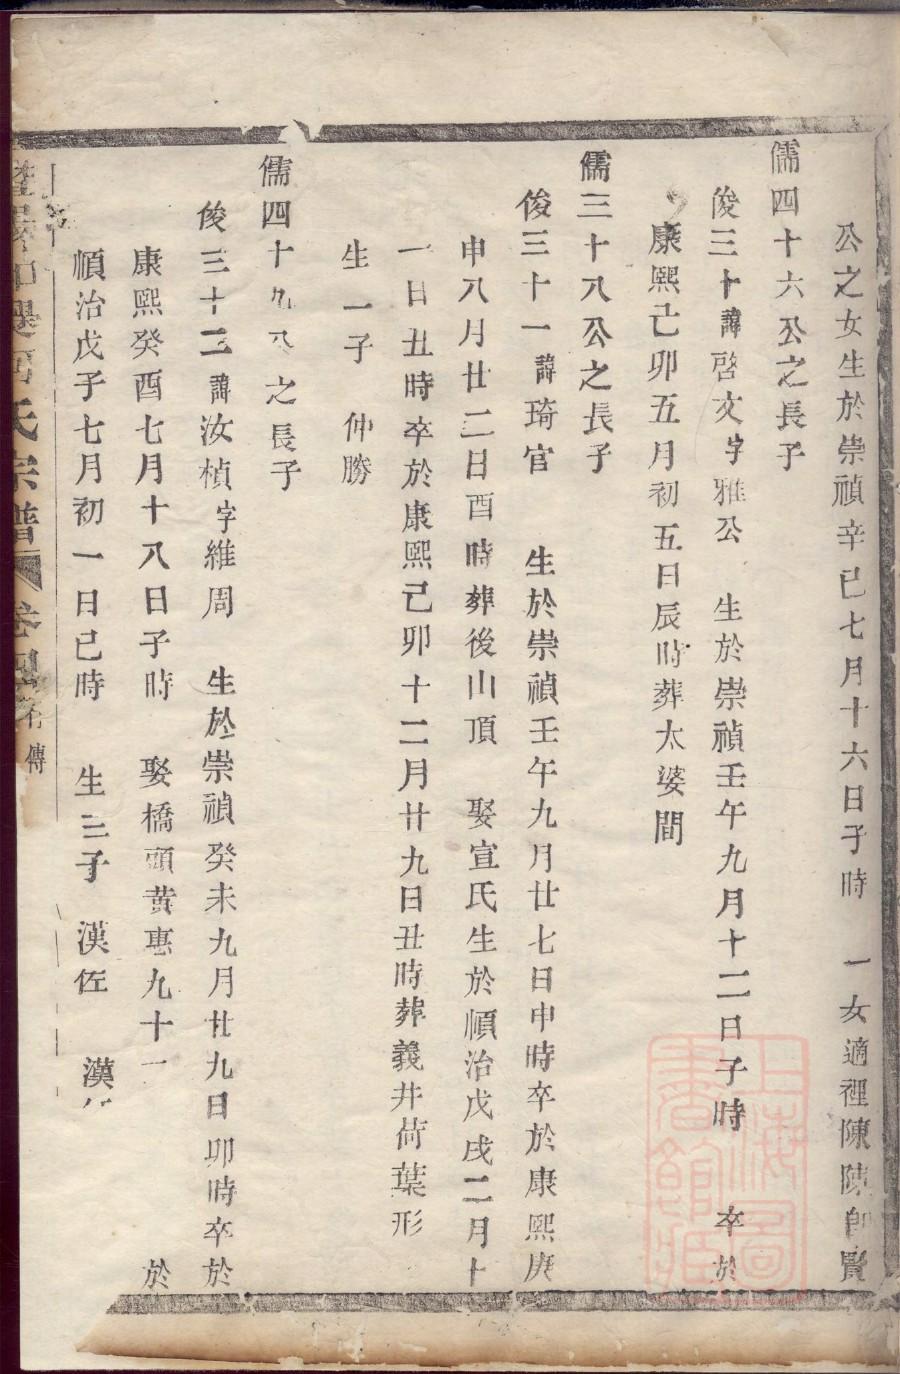 公之女生於崇禎辛巳七月十六日子時　一女適裡陳陳　賢
儒四十六公之長子
俊三十諱啓文字雅公　生於崇禎壬午九月十二日子時　卒於
康熙己卯五月初五日辰時葬太婆間
儒三十八公之長子
俊三十一諱琦官　生於崇禎壬午九月廿七日申時卒於康熙庚
申八月廿二日酉時葬後山頂　娶宣氏生於順治戊戌二月十
一日丑時卒於康熙己卯十二月廿九日丑時葬義井荷葉形
生一子　仲勝
儒四十九公之長子
俊三十二諱汝楨字維周　生於崇禎癸未九月廿九日卯時卒於
康熙癸酉七月十八日子時　娶橋頭黄惠九十一　於
順治戊子七月初一日巳時　生三子　漢佐　漢
氏宗譜　卷四　傳
上海圖書館藏